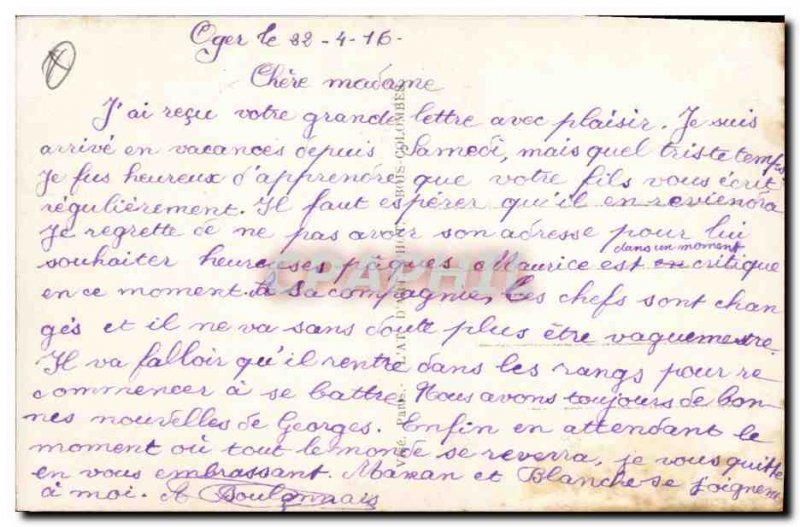 Oger le 22-4-16-
Chère madame
J'ai reçu votre grande lettre avec plaisir. Je suis
arrivé en vacances depuis Samedi, mais quel triste temps
Je fus heureux d'apprendre que votre fils vous écrit
régulièrement. Il faut espérer qu'il en reviendra
Je regrette de ne pas avoir son adresse pour lui
souhaiter heureuses pâques Maurice est dans un moment critique
en ce moment. à sa compagnie, les chefs sont chan
gés et il ne va sans doute plus être vaguemestre.
Il va falloir qu'il rentre dans les rangs pour re
commencer à se battre. Nous avons toujours de bon-
nes nouvelles de Georges. Enfin en attendant le
moment où tout le monde se reverra, je vous quitte
en vous embrassant. Maman et Blanche se joignent
à moi. A Boulonnais
BOIS-COLOMBES
Visé, Paris.
CPAPHIL